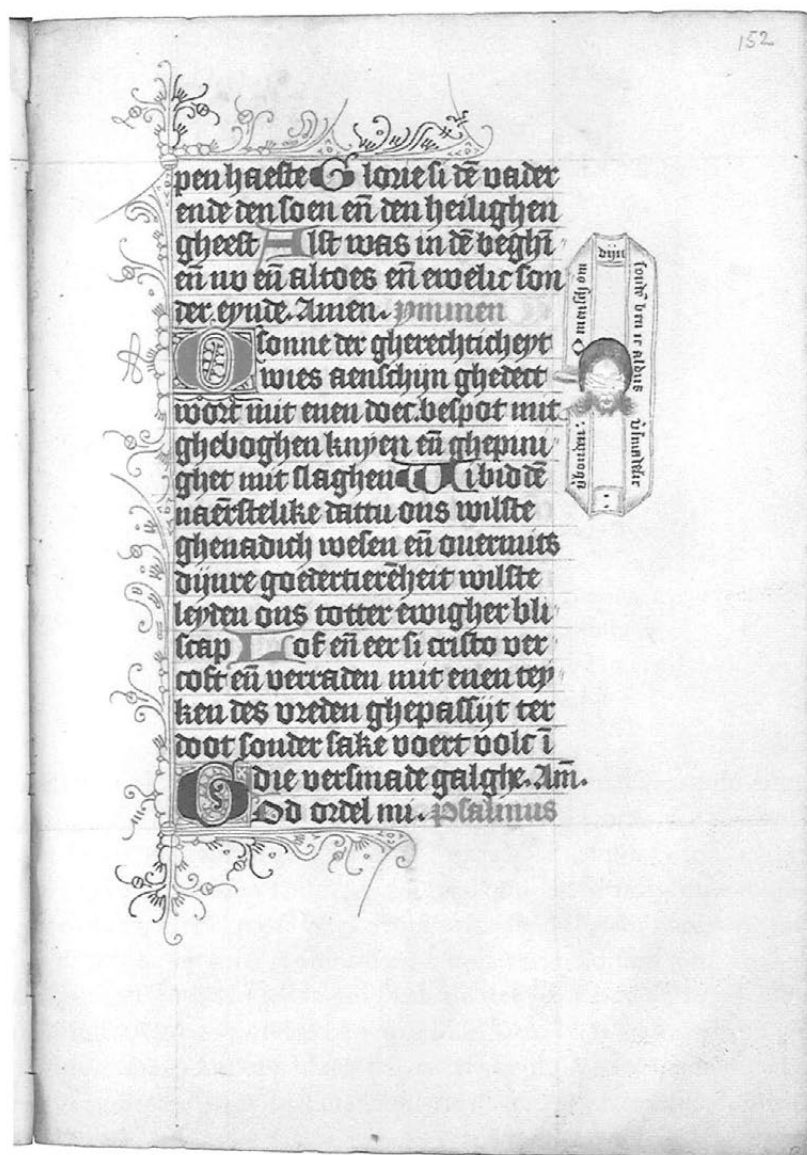 152
pen haeste Glorie si dē vader
ende den soen en̄ den heilighen
gheest Alst was in dē beghī
en̄ nv en̄ altoes en̄ ewelic son
der eynde. Amen. ymmen
O sonne der gherechticheyt
wies aenschijn ghedect
wort mit enen doec. bespot mit
gheboghen knyen en̄ ghepini
ghet mit slaghen Wi bid dē
naērstelike dattu ons wilste
ghenadich wesen en̄ ouermits
dijnre goedertierēheit wilste
leyden ons totter ewigher bli
scap Lof en̄ eer si cristo ver
coft en̄ verraden mit enen tey
ken des vreden ghepassijt ter
doot sonder sake voert volc ī
die versmade galghe. Am̄.
God ordel mi. psalmus
O mensch om
dijn
sondē ben ic aldus
v̄smadelic